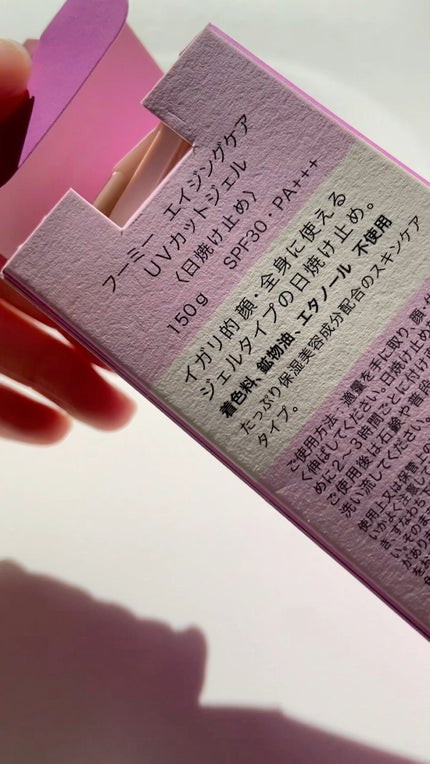 フーミー エイジングケア
UVカットジェル
〈日焼け止め〉
150g SPF30・PA+++
イガリ的 顔・全身に使える
ジェルタイプの日焼け止め。
着色料、鉱物油、エタノール 不使用
たっぷり保湿美容成分配合のスキンケア
タイプ。
ご使用方法 適量を手に取り、顔
く伸ばしてください。日焼け止め
めに2〜3時間ごとに付け
ご使用後は石鹸や普
洗い流してください。
使用上又は保管